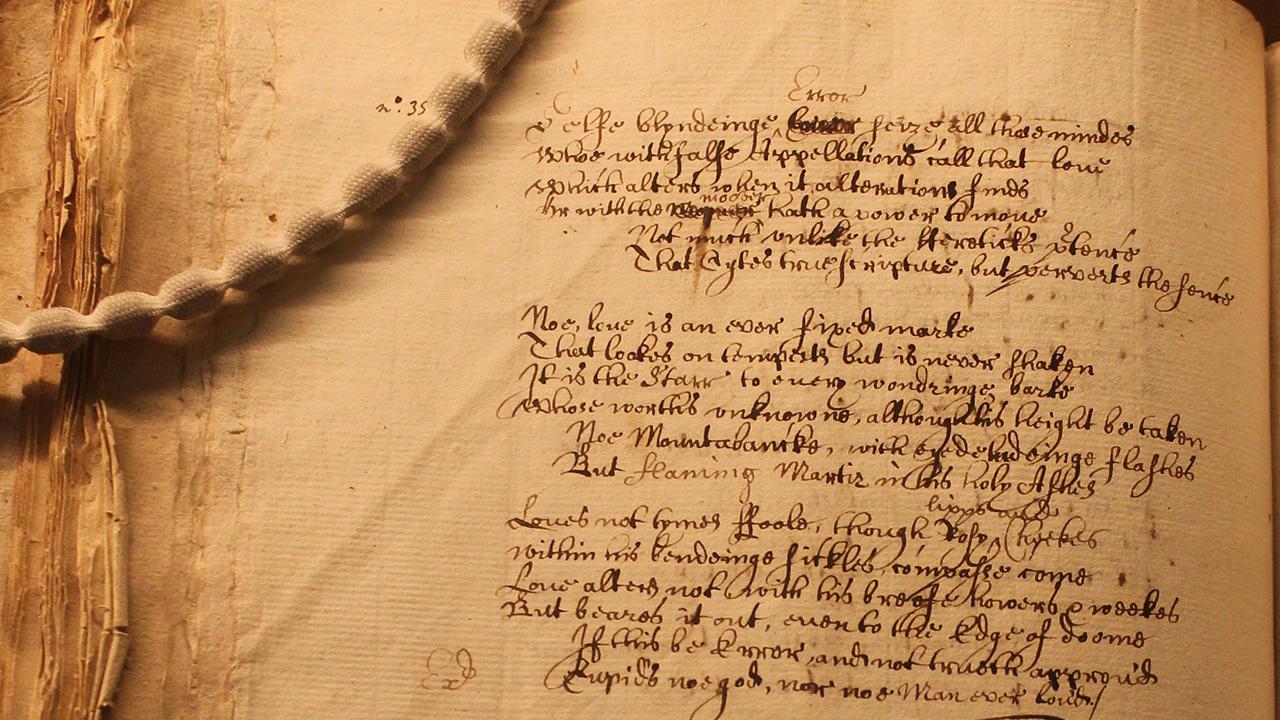 n.º 35
Error
Selfe blyndeinge seize all those mindes
Who with false Appellations call that loue
Which alters when it alterations finds
Or with the mouer hath a power to moue
Not much vnlike the Hereticks p̃tence
That Cytes true scripture, but perverts the sence
Noe, loue is an ever fixed marke
That lookes on tempests but is never shaken
It is the Starr to euery wondringe barke
Whose worths vnknowne, although his height be taken
Noe Mountabancke, with eyedeludeinge flashes
But flaming Martir in his holy Ashes
lipps and
Loues not tymes ffoole, though Rosy Cheekes
within his bendeinge sickles compasse come
Loue alters not with his breefe howers & weekes
But beares it out, euen to the Edge of doome
If this be Error and not trueth approu'd
Cupids noe god, nor noe Man ever lou'd./